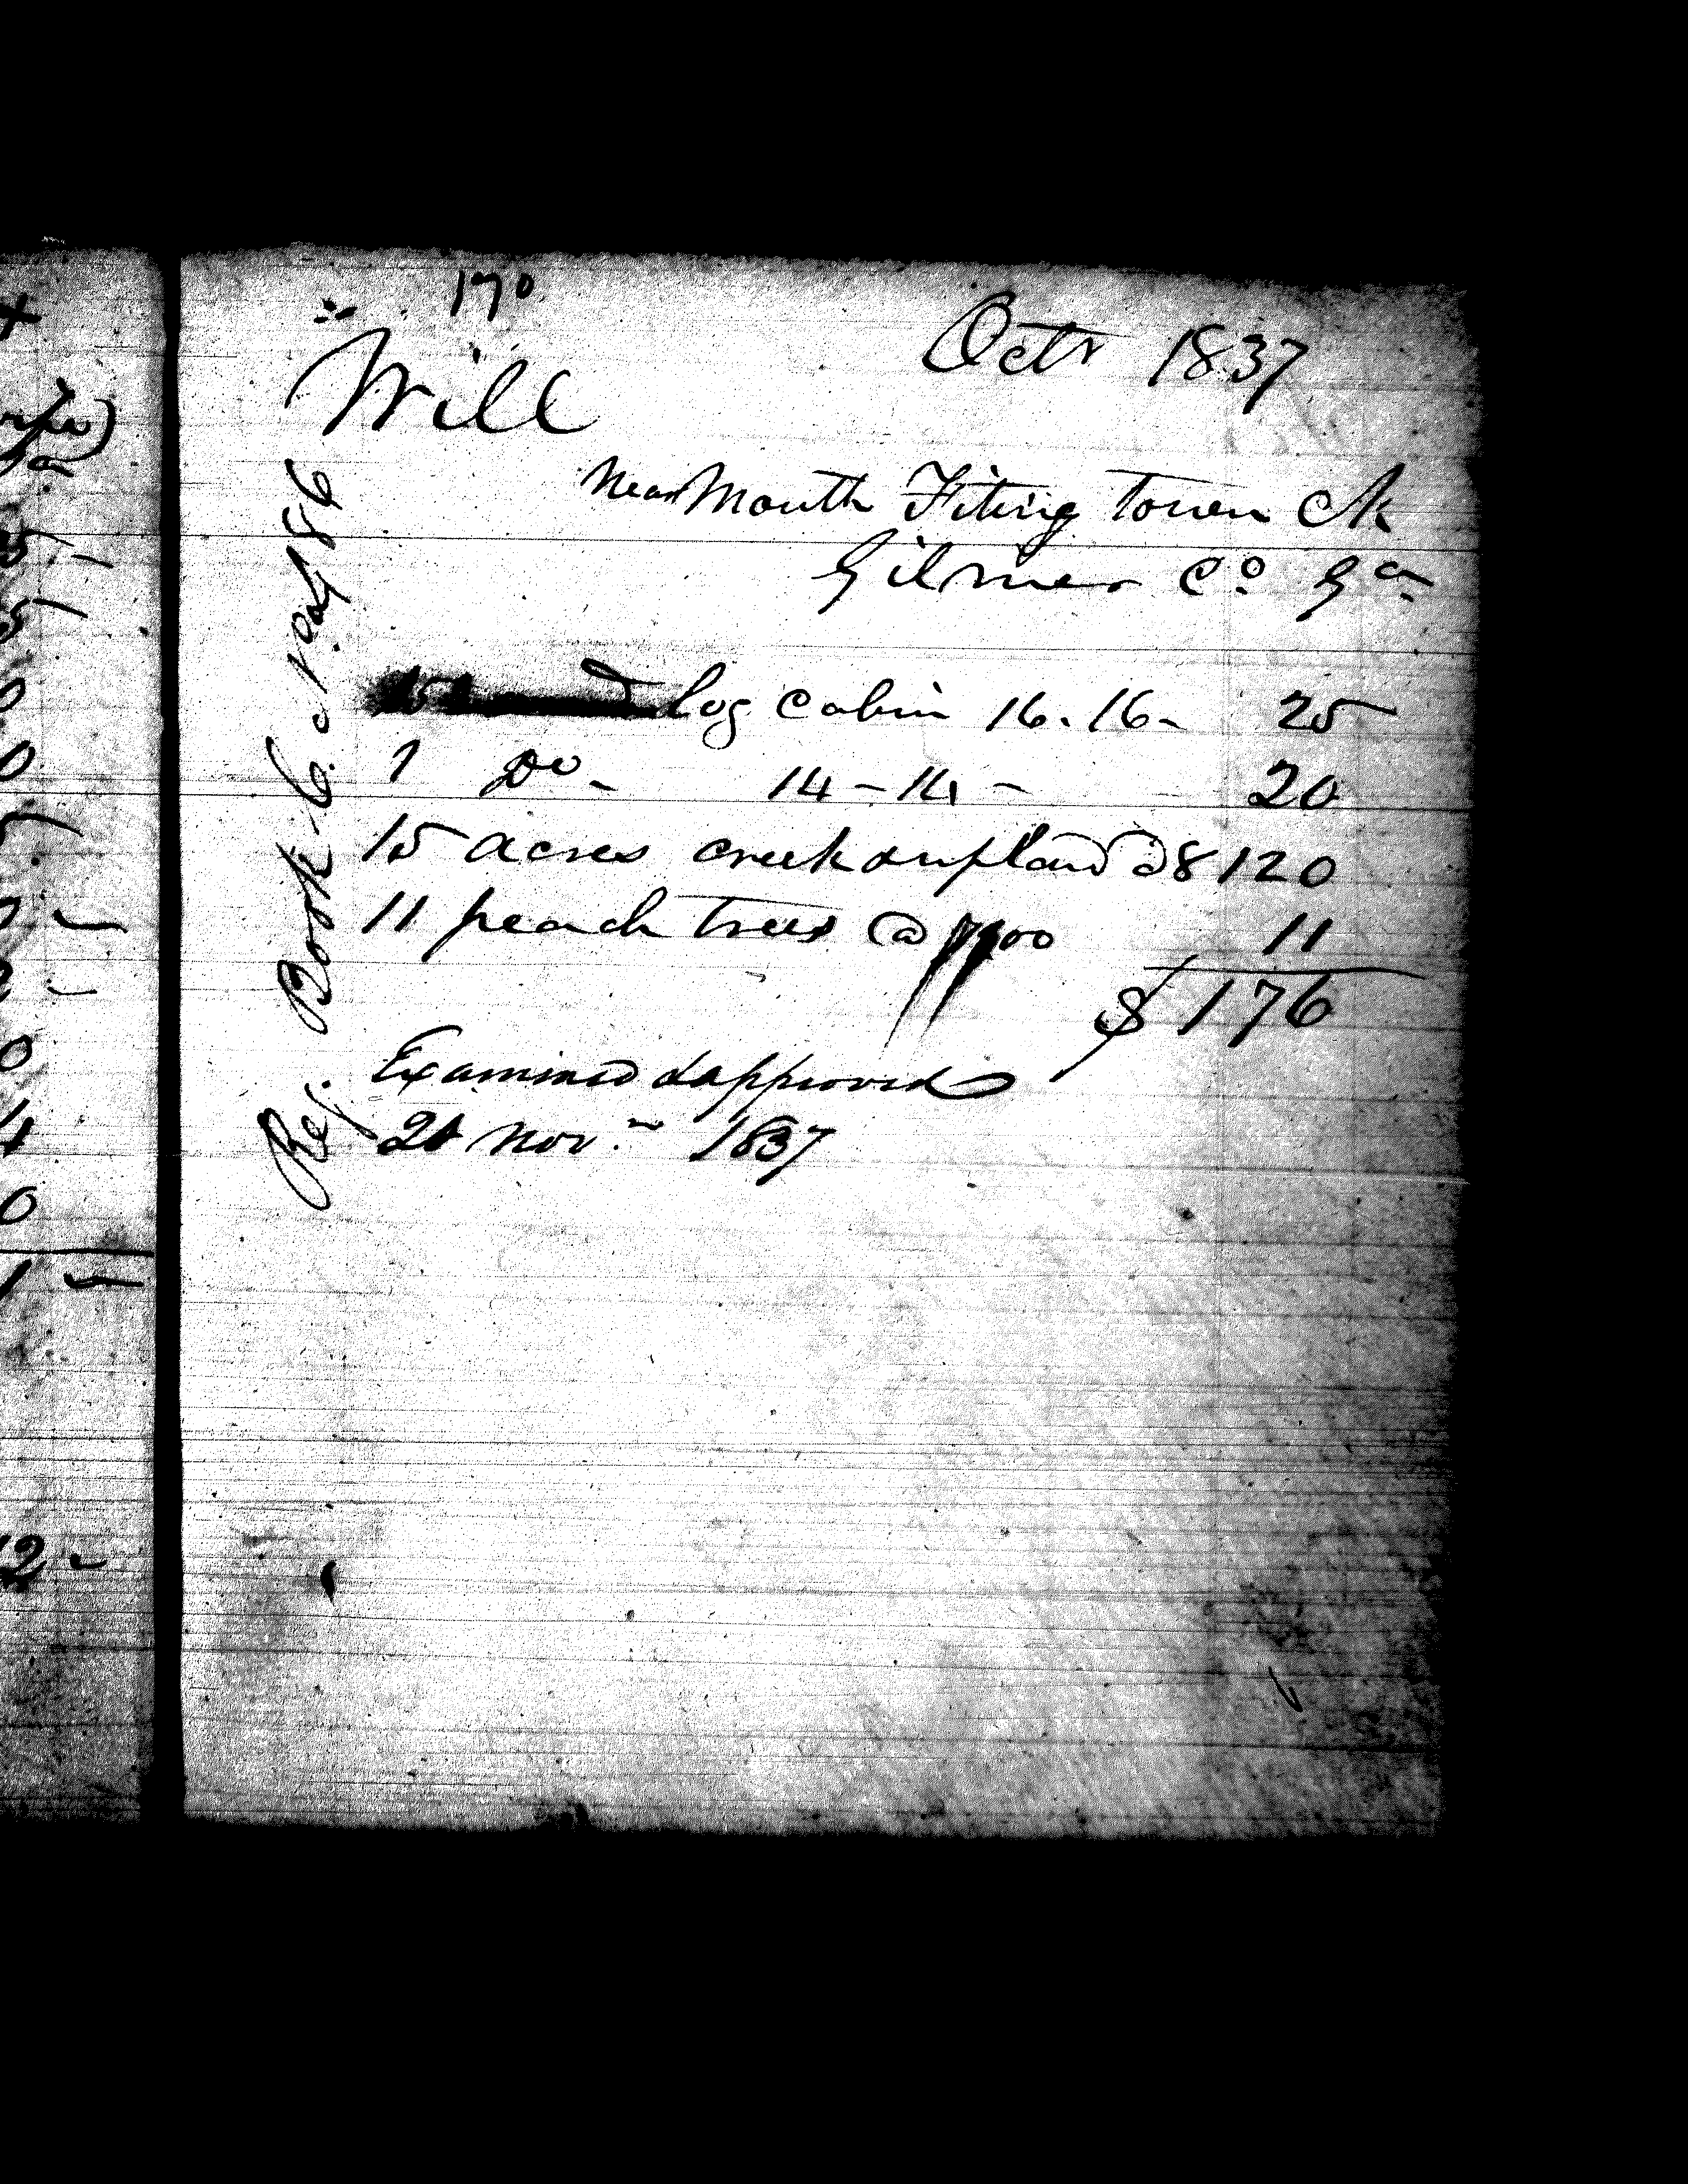 170
Octr 1837
Will
Near Mouth Fiting Town Ck
Gilmer Co Ga
log cabin 16. 16 - 25
1 Do - 14 - 14 - 20
15 acres creek & upland @ 8 120
11 peach trees @ 100 11
$ 176
Examined & approved
Nov. 1837
Reg. Book C. Pag 186